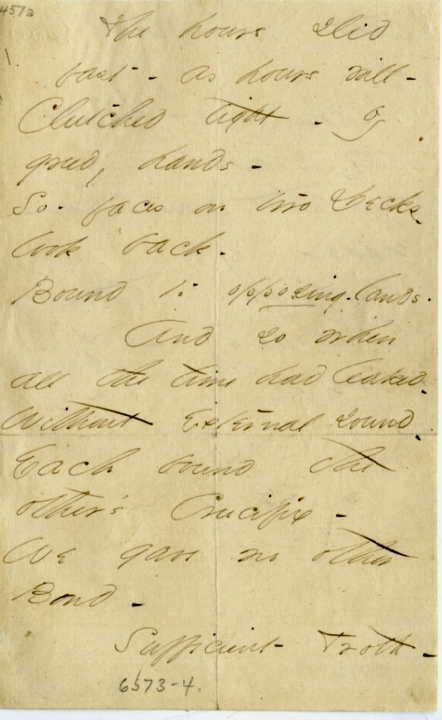 The hours slid
fast - as hours will -
Clutched tight - by
greedy hands -
So - faces on two Decks
look back -
Bound to opposing lands.
And so when
all the time had leaked
Without external sound,
Each bound the
other's Crucifix -
We gave no other
Bond -
Sufficient Troth -
6573-4.